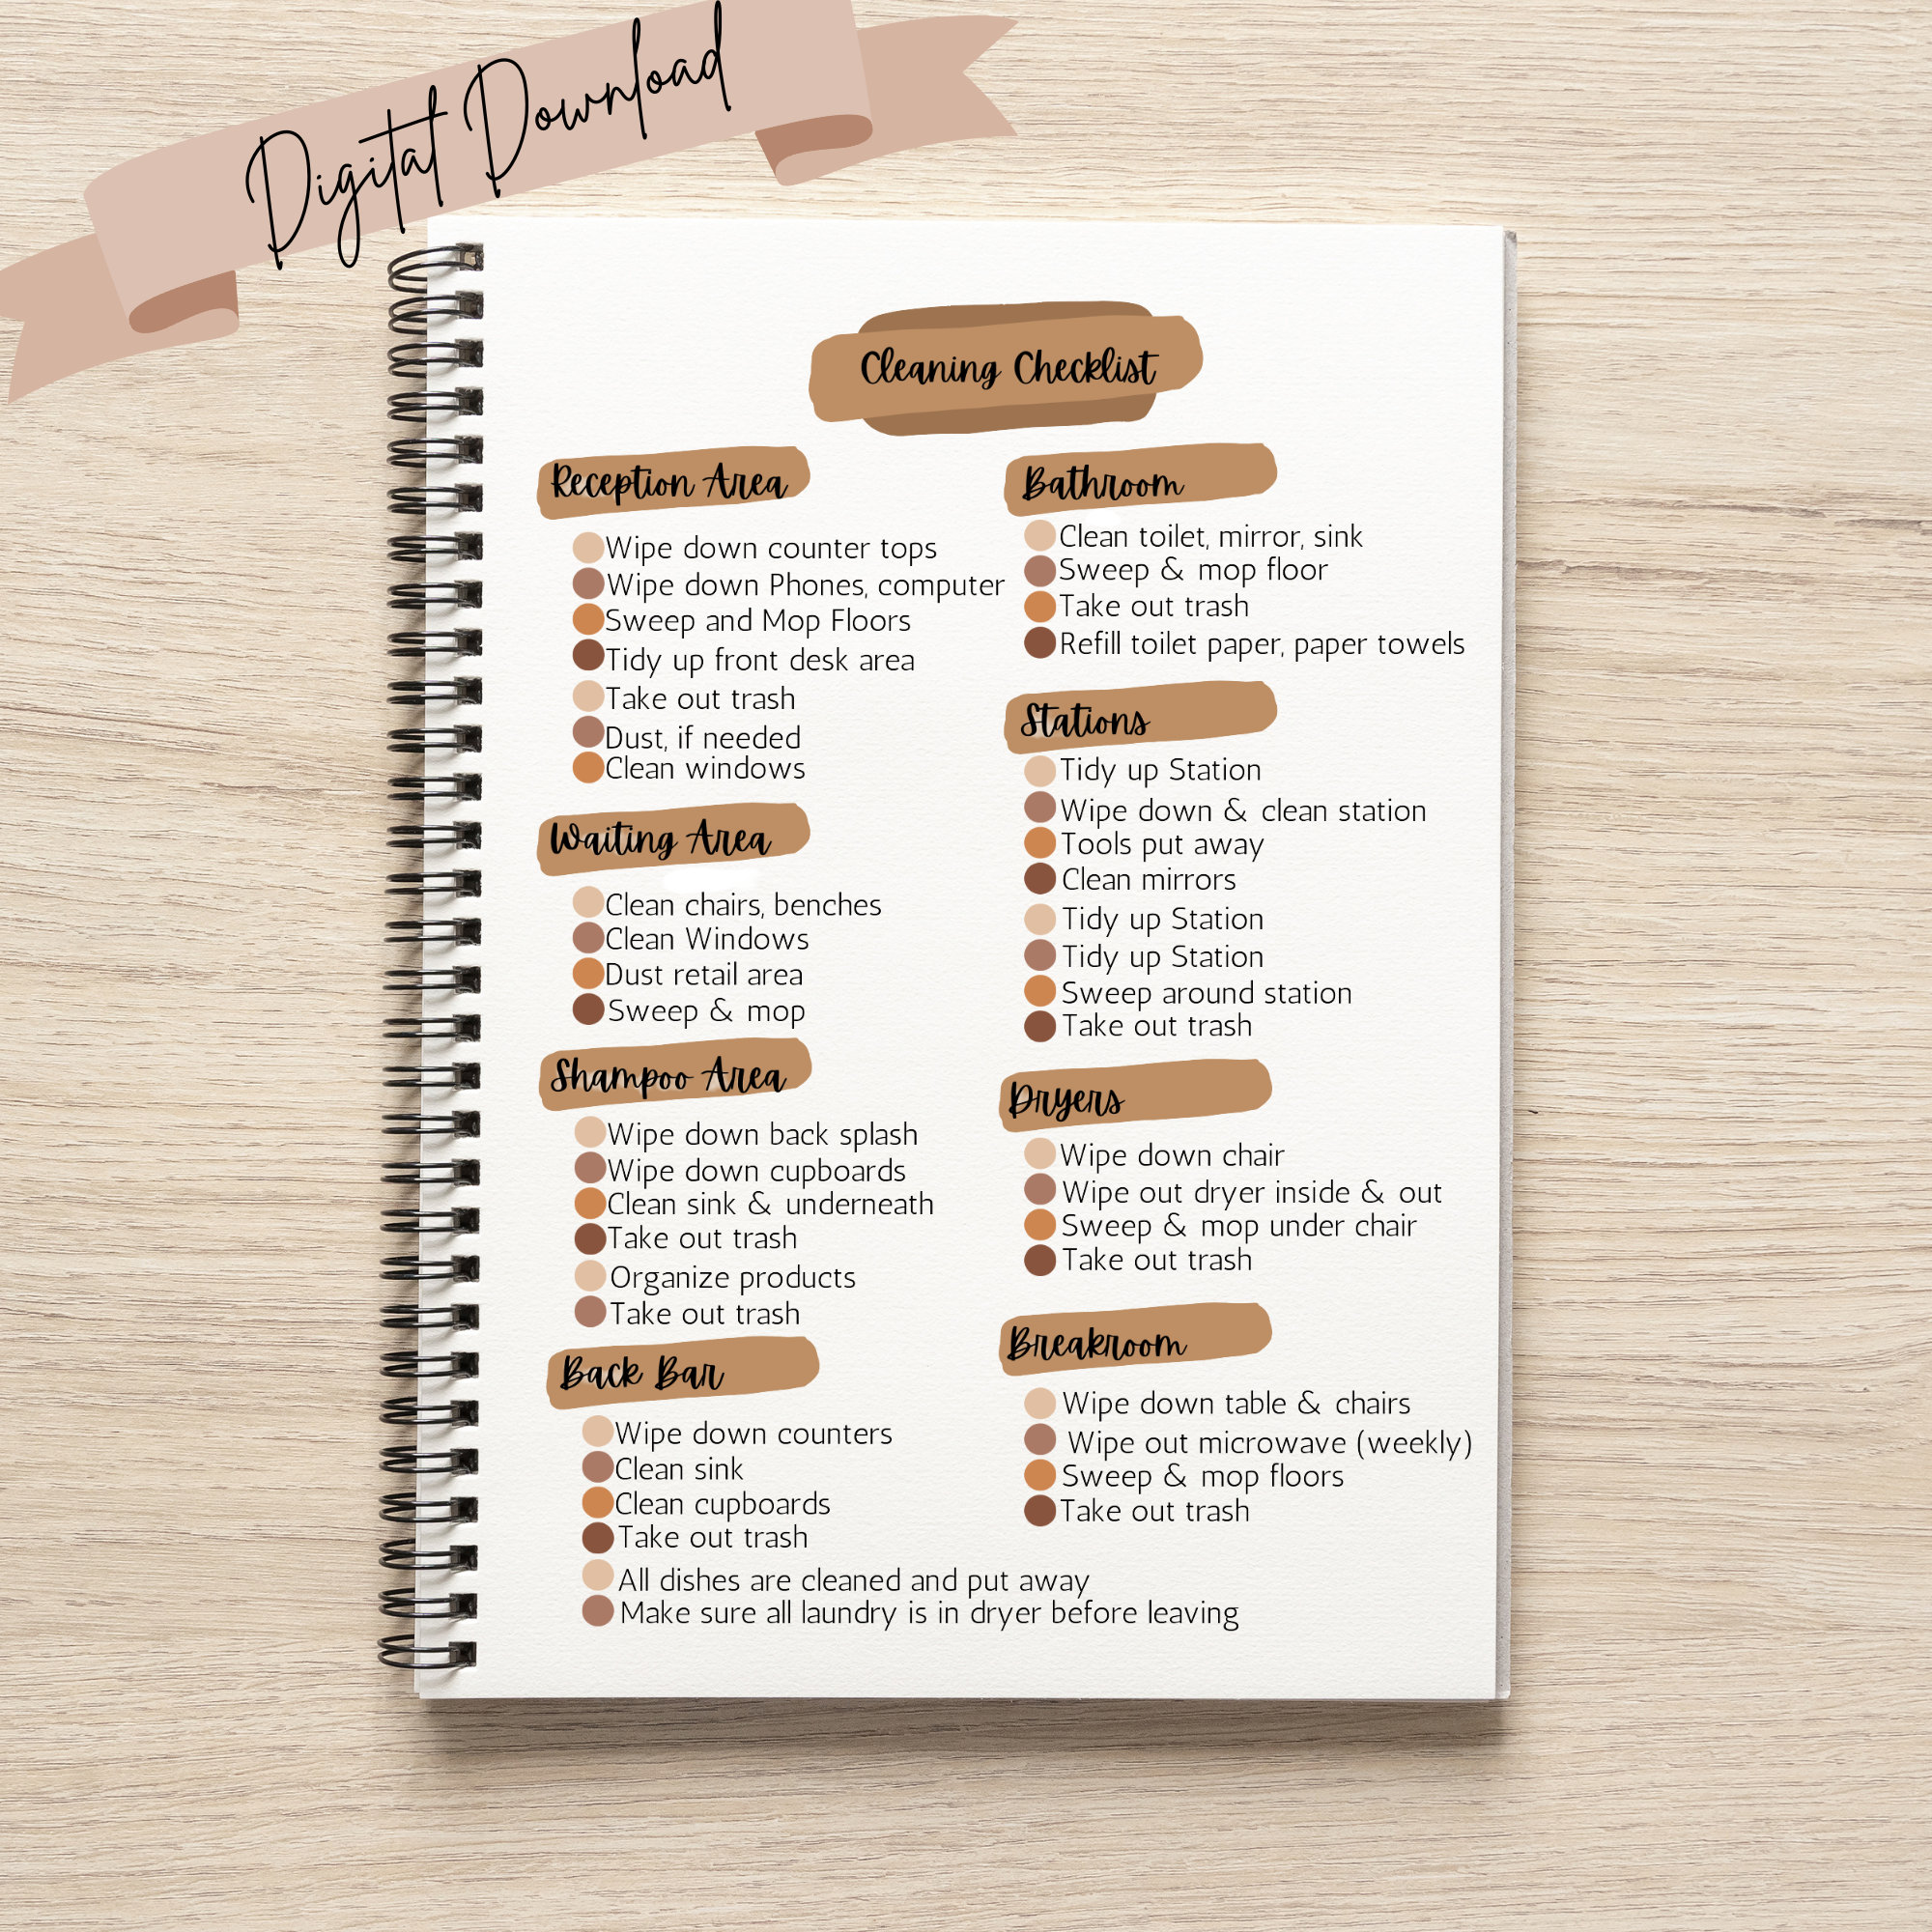 Digital Download
Cleaning Checklist
Reception Area
Wipe down counter tops
Wipe down Phones, computer
Sweep and Mop Floors
Tidy up front desk area
Take out trash
Dust, if needed
Clean windows
Waiting Area
Clean chairs, benches
Clean Windows
Dust retail area
Sweep & mop
Shampoo Area
Wipe down back splash
Wipe down cupboards
Clean sink & underneath
Take out trash
Organize products
Take out trash
Back Bar
Wipe down counters
Clean sink
Clean cupboards
Take out trash
All dishes are cleaned and put away
Make sure all laundry is in dryer before leaving
Bathroom
Clean toilet, mirror, sink
Sweep & mop floor
Take out trash
Refill toilet paper, paper towels
Stations
Tidy up Station
Wipe down & clean station
Tools put away
Clean mirrors
Tidy up Station
Tidy up Station
Sweep around station
Take out trash
Dryers
Wipe down chair
Wipe out dryer inside & out
Sweep & mop under chair
Take out trash
Breakroom
Wipe down table & chairs
Wipe out microwave (weekly)
Sweep & mop floors
Take out trash